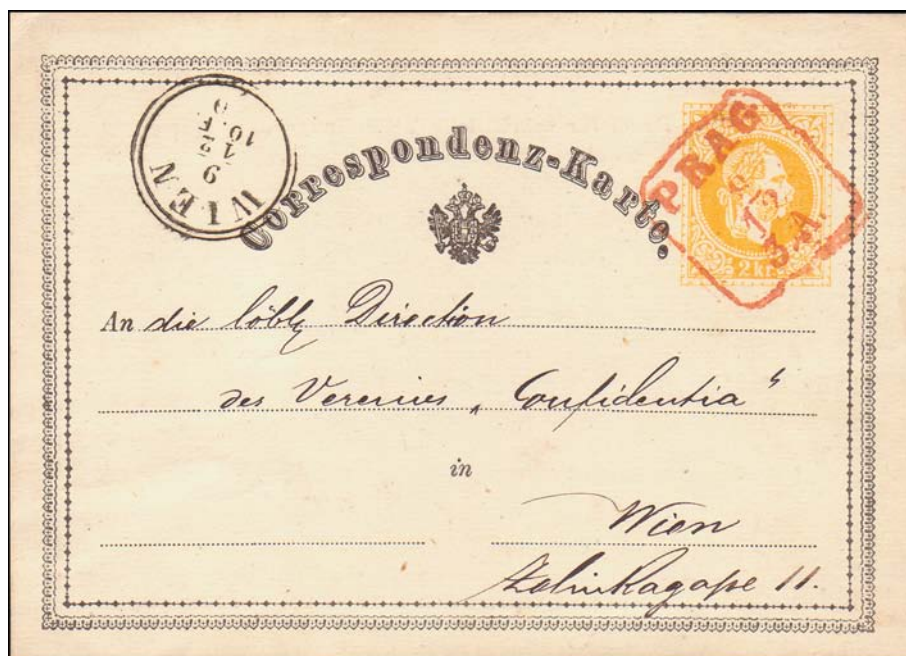 WIEN
1
9
1/2
10. F.
9
Correspondenz-Karte.
PRAG
12
3.A.
2 kr.
An die löbl Direction
des Vereines „Confidentia“
in
Wien
Zelinkagasse 11.